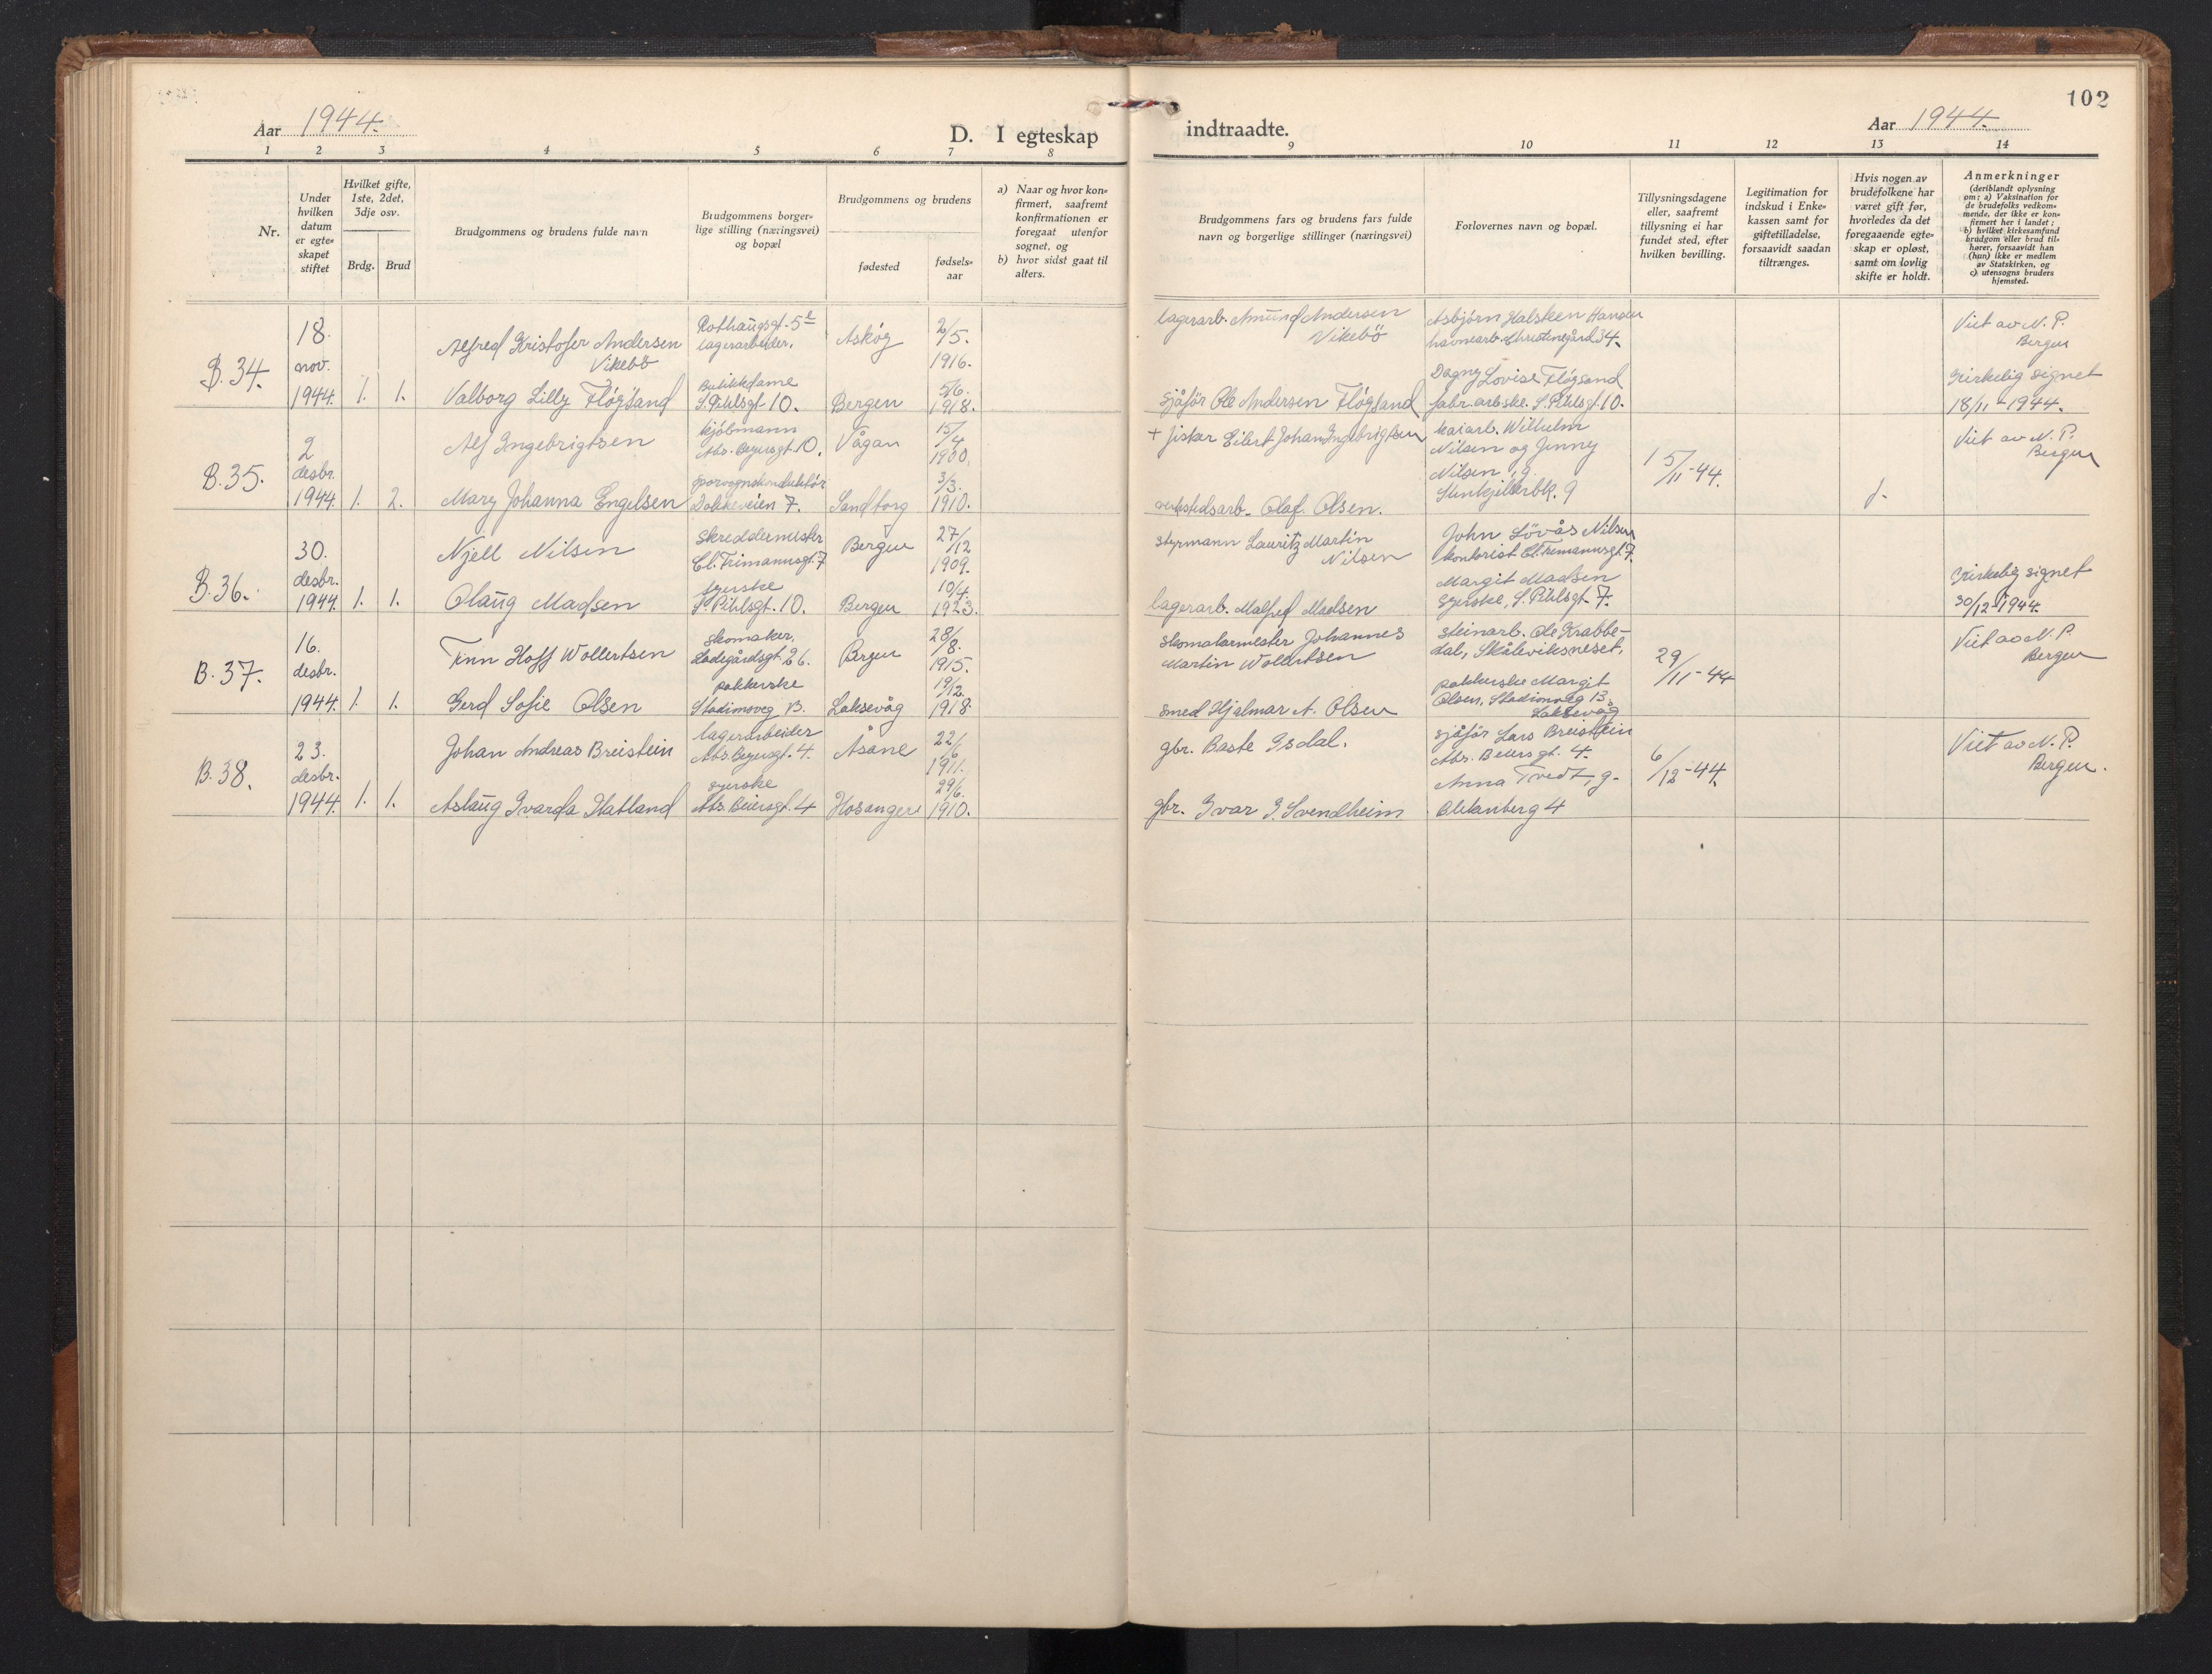 102
Aar 1944.
D. I egteskap
indtraadte.
Aar 1944.
1 2 3 4 5 6 7 8 9 10 11 12 13 14
Nr.
Under
hvilken
datum
er egte=
skapet
stiftet
Hvilket gifte,
1ste, 2det,
3dje osv.
Brdg. Brud
Brudgommens og brudens fulde navn
Brudgommens borger=
lige stilling (næringsvei)
og bopæl
Brudgommens og brudens
fødested
fødsels=
aar
a) Naar og hvor kon=
firmert, saafremt
konfirmationen er
foregaat utenfor
sognet, og
b) hvor sidst gaat til
alters.
Brudgommens fars og brudens fars fulde
navn og borgerlige stillinger (næringsvei)
Forlovernes navn og bopæl.
Tillysningsdagene
eller, saafremt
tillysning ei har
fundet sted, efter
hvilken bevilling.
Legitimation for
indskud i Enke=
kassen samt for
giftetilladelse,
forsaavidt saadan
tiltrænges.
Hvis nogen av
brudefolkene har
været gift før,
hvorledes da det
foregaaende egte=
skap er opløst,
samt om lovlig
skifte er holdt.
Anmerkninger
(deriblandt oplysning
om: a) Vaksination for
de brudefolks vedkom=
mende, der ikke er kon=
firmert her i landet;
b) hvilket kirkesamfund
brudgom eller brud til=
hører, forsaavidt han
(hun) ikke er medlem
av Statskirken, og
c) utensogns bruders
hjemsted.
B.34.
18.
nov.
1944.
1. 1.
Alfred Kristofer Andersen
Vikebö
Valborg Lilly Fløgsand
Rothaugsgt. 5
lagerarbeider.
Butikkdame
S. Pihlsgt. 10.
Askøy
Bergen
2/5.
1916.
5/6.
1918.
lagerarb. Amund Andersen
Vikebö
sjåför Ole Andersen Fløgsand
Asbjörn Halsteen Hansen
havnearb. Christinegård 34.
Dagny Lovise Fløgsand
fabr.arbske. S. Pihlsgt. 10.
Viet av N. P.
Bergen
Kirkelig signet
18/11-1944.
B.35.
2
desbr.
1944.
1. 2.
Alf Ingebrigtsen
Mary Johanna Engelsen
kjöbmann
Abs. Beyersgt. 10.
sporvognskonduktör
Dokkeveien 7.
Vågan
Sandtorg
15/4
1900.
3/3.
1910.
+ fisker Eilert Johan Ingebrigtsen
verkstedsarb. Olaf Olsen.
kaiarb. Wilhelm
Nilsen og Jenny
Nilsen, g.
Stenkjellerbk. 9
15/11-44.
Viet av N. P.
Bergen
B.36.
30.
desbr.
1944.
1. 1.
Njell Nilsen
Olaug Madsen
Skreddermester
Cl. Frimannsgt. 7
syerske
S. Pihlsgt. 10.
Bergen
Bergen
27/12
1909.
10/4.
1923.
styrmann Lauritz Martin
Nilsen
lagerarb. Malfred Madsen
John Lövås Nilsen
kontorist Cl. Frimannsgt. 7.
Margit Madsen
syerske, S. Pihlsgt. 7.
Kirkelig signet
30/12-1944.
B.37.
16.
desbr.
1944.
1. 1.
Finn Hoff Wollertsen
Gerd Sofie Olsen
Skomaker,
Ladegårdsgt. 26.
pakkerske
Stadionveg 13.
Bergen
Laksevåg
28/8.
1915.
19/12.
1918.
Skomakermester Johannes
Martin Wollertsen
smed Hjalmar A. Olsen
steinarb. Ole Krabbe-
dal, Skåleviksneset,
pakkerske Margit
Olsen, Stadionveg 13.
Laksevåg
29/11-44
Viet av N. P.
Bergen
B.38.
23.
desbr.
1944.
1. 1.
Johan Andreas Breistein
Aslaug Ivarda Hatland
lagerarbeider
Abs. Beyersgt. 4.
syerske
Abs. Beiersgt. 4
Åsane
Hosanger
22/6
1911.
29/6.
1910.
gbr. Baste Isdal.
gbr. Ivar I. Svendheim
sjåför Lars Breistein
Abs. Beiersgt. 4.
Anna Tvedt, g.
Blekenberg 4
6/12-44.
Viet av N. P.
Bergen.